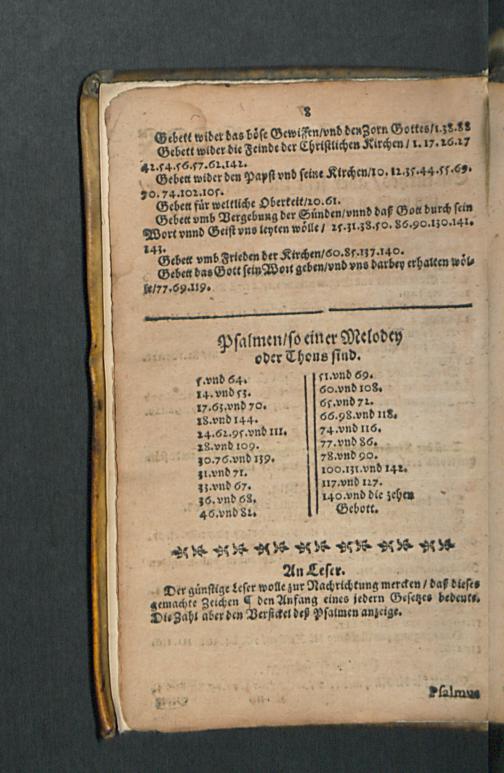 8
Gebett wider das böse Gewissen/vnd den Zorn Gottes/1.38.88
Gebett wider die Feinde der Christlichen Kirchen / 1.17.26.27
42.54.56.57.62.142.
Gebett wider den Papst vnd seine Kirchen/10.12.35.44.55.69.
70.74.102.105.
Gebett für weltliche Oberkeit/20.61.
Gebett vmb Vergebung der Sünden/vnnd daß Gott durch sein
Wort vnnd Geist vns leyten wölle / 25.31.38.50.86.90.130.141.
143.
Gebett vmb Frieden der Kirchen/60.85.137.140.
Gebett das Gott sein Wort geben/vnd vns darbey erhalten wöl-
le/77.69.119.
Psalmen/so einer Melodey
oder Thons sind.
5.vnd 64.
14.vnd 53.
17.63.vnd 70.
18.vnd 144.
24.62.95.vnd 111.
28.vnd 109.
30.76.vnd 139.
31.vnd 71.
33.vnd 67.
36.vnd 68.
46.vnd 82.
51.vnd 69.
60.vnd 108.
65.vnd 72.
66.98.vnd 118.
74.vnd 116.
77.vnd 86.
78.vnd 90.
100.131.vnd 142.
117.vnd 127.
140.vnd die zehen
Gebott.
An Leser.
Der günstige Leser wolle zur Nachrichtung mercken / daß dieses
gemachte Zeichen ¶ den Anfang eines jedern Gesetzes bedeute.
Die Zahl aber den Versickel deß Psalmen anzeige.
Psalmus